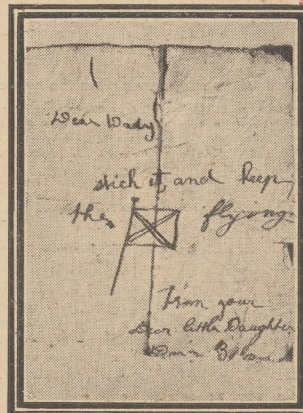 Dear Dady
stick it and keep
the flying
From your
Dear little Daughter